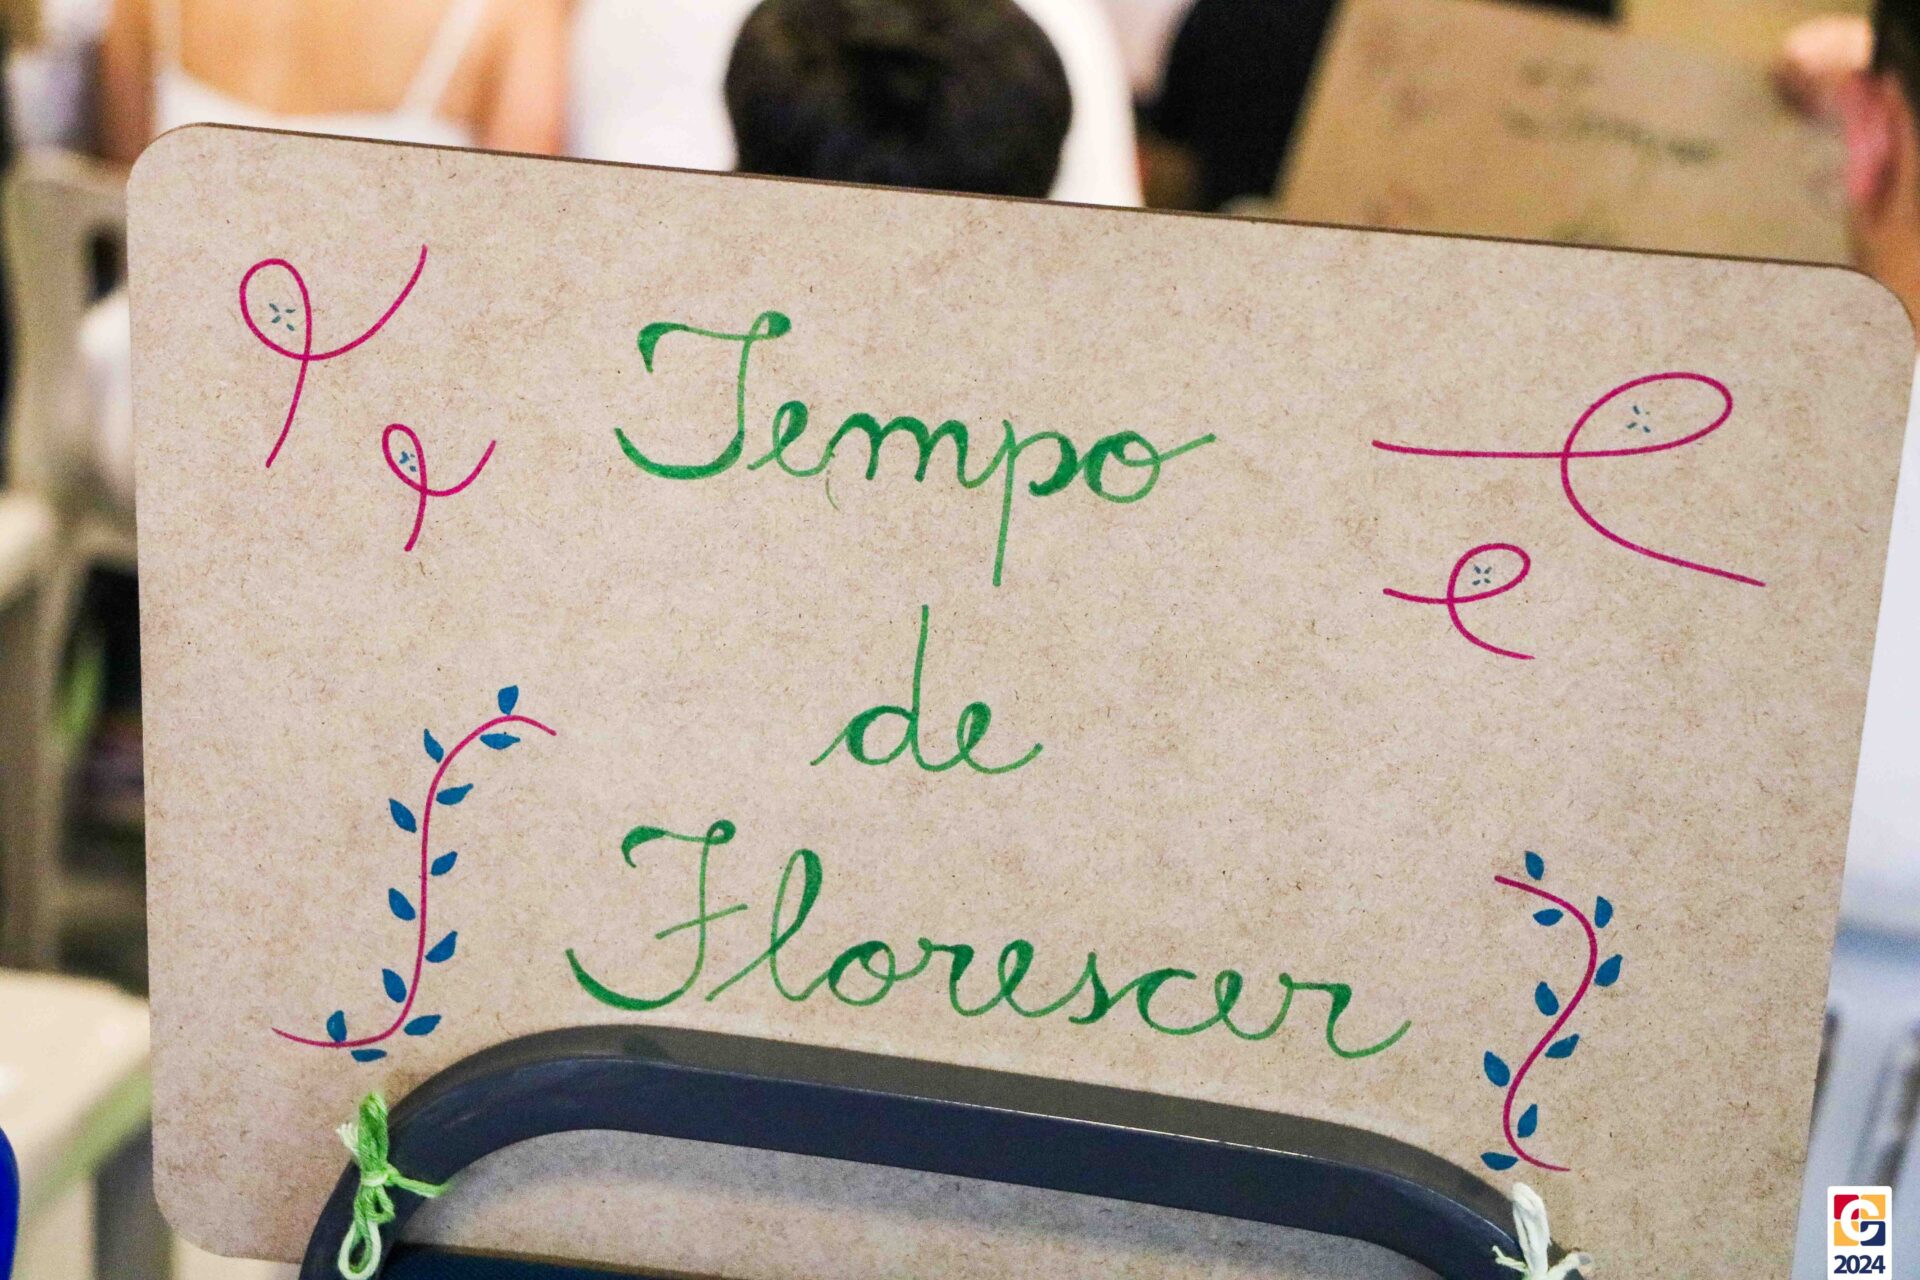 Tempo
de
Florescer
2024